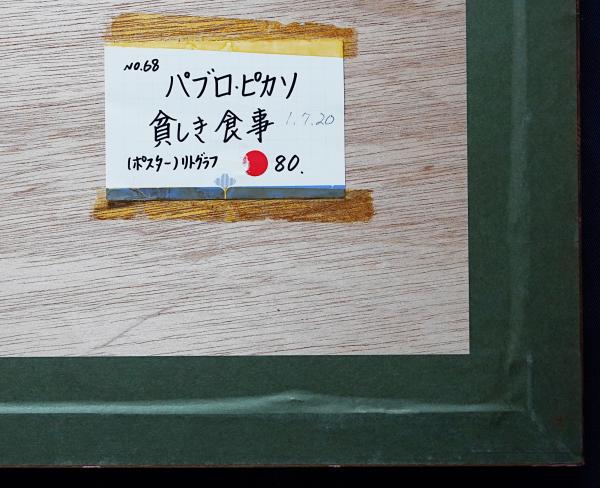 NO.68
パブロ・ピカソ
貧しき食事 1.7.20
(ポスター)リトグラフ 80.